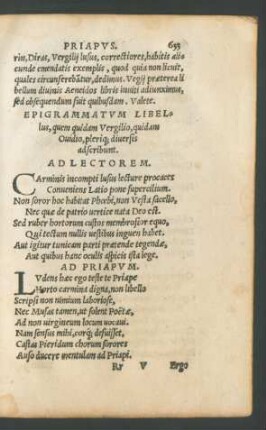 PRIAPVS. 633
rin, Diras, Vergilij lusus, correctiores, habitis aliũ
cunde emendatis exemplis, quod quia non licuit,
quales circunferebātur, dedimus. Vegij præterea li
bellum diuinis Aeneidos libris inuiti adiunximus,
sed obsequendum fuit quibusdam. Valete.
EPIGRAMMATVM LIBEL-
lus, quem quidam Vergilio, quidam
Ouidio, pleriq; diuersis
adscribunt.
AD LECTOREM.
CArminis incompti lusus lecture procaces
Conueniens Latio pone supercilium.
Non soror hoc habitat Phœbi, non Vesta sacello,
Nec quæ de patrio uertice nata Deo est.
Sed ruber hortorum custos membrosior equo,
Qui tectum nullis uestibus inguen habet.
Aut igitur tunicam parti prætende tegendæ,
Aut quibus hanc oculis aspicis ista lege.
AD PRIAPVM.
LVdens hæc ego teste te Priape
Horto carmina digna, non libello
Scripsi non nimium laboriose,
Nec Musas tamen, ut solent Poëtæ,
Ad non uirgineum locum uocaui.
Nam sensus mihi, corq; defuisset,
Castas Pieridum chorum sorores
Auso ducere mentulam ad Priapi.
Rr V Ergo